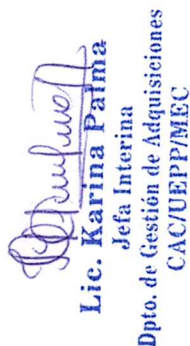 Lic. Karina Palma
Jefa Interina
Dpto. de Gestión de Adquisiciones
CAC/UEPP/MEC